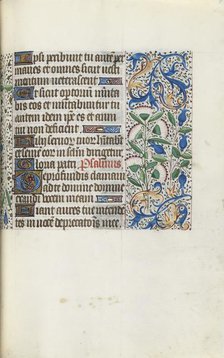 Ipsi peribunt tu aute per
manes et omnes sicut vesti
mentum veterascent
Et sicut optoriu muta
bis eos et mutabuntur tu
autem idem ipse es et anni
tui non deficient
Filii servor tuor hitabut
et semen eor in seclm dirigetur
Gloria patri Psalmus
De profundis clamavi
ad te domine domine
exaudi vocem meam
Fiant aures tue inten
tes in voce deprecatois mee